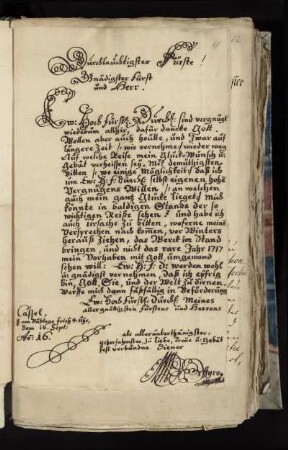 Durchlauchtigster Fürste!
Gnädigster Fürst
und Herr!
Ew: Hoch Fürstl: Durchl: sind vergnügt
wiederum alhir, dafür dancke Gott.
Wollen aber auch bralle, und zwar auf
längere Zeit, wie vernehme, wieder weg
Auf welche Reise mein Glück Wünsch u:
Gebät verheissen sey, Mit demüthigsten
Bitten, wo einige Möglichkeit, daß ich
um Ew: H: F: Durchl: selbst eigenen hohe
Vergnügens Willen, an welchen
auch mein gantz Glücke lieget, mich
könnte in baldigen Stande der so
wichtigen Reise sehen. und habe ich
auch ursache zu bitten, woferne meine
Versprechen nach kommen, vor Winters
heraus ziehen, das Werck im Stand
bringen, und nicht das rare Jahr 1717
mein Vorhaben mit Gott umgewand
sehen will: Ew: H: F: D: werden wohl
in gnädigst vernehmen, daß ich eyfrig
bin, Gott, Sie, und der Welt zu dienen.
Ew: Hoch Fürstl: Durchl: Meines
allergnädigsten Fürsten und Herrens
Cassel,
dem 16. Sept:
Ao: 16.
als allerunterthänigster,
gehorsamster, zu liebe, treüe u: Gebät
fest verbundne Diener
Orffyre